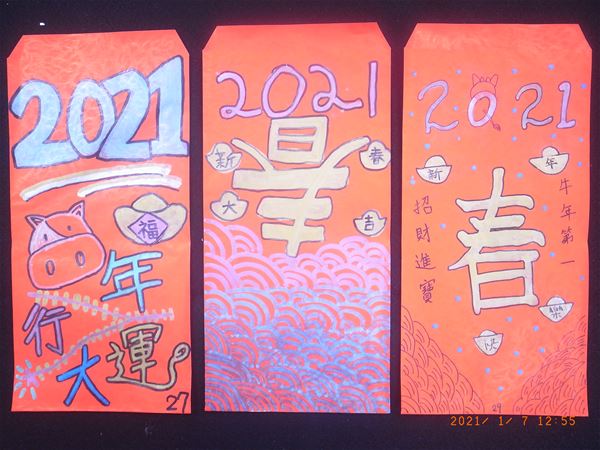 2021
福
年
行大運
27
2021
春
新春
大吉
2021
新年
快樂
牛年第一
春
招財進寶
29
2021/ 1/ 7 12:55